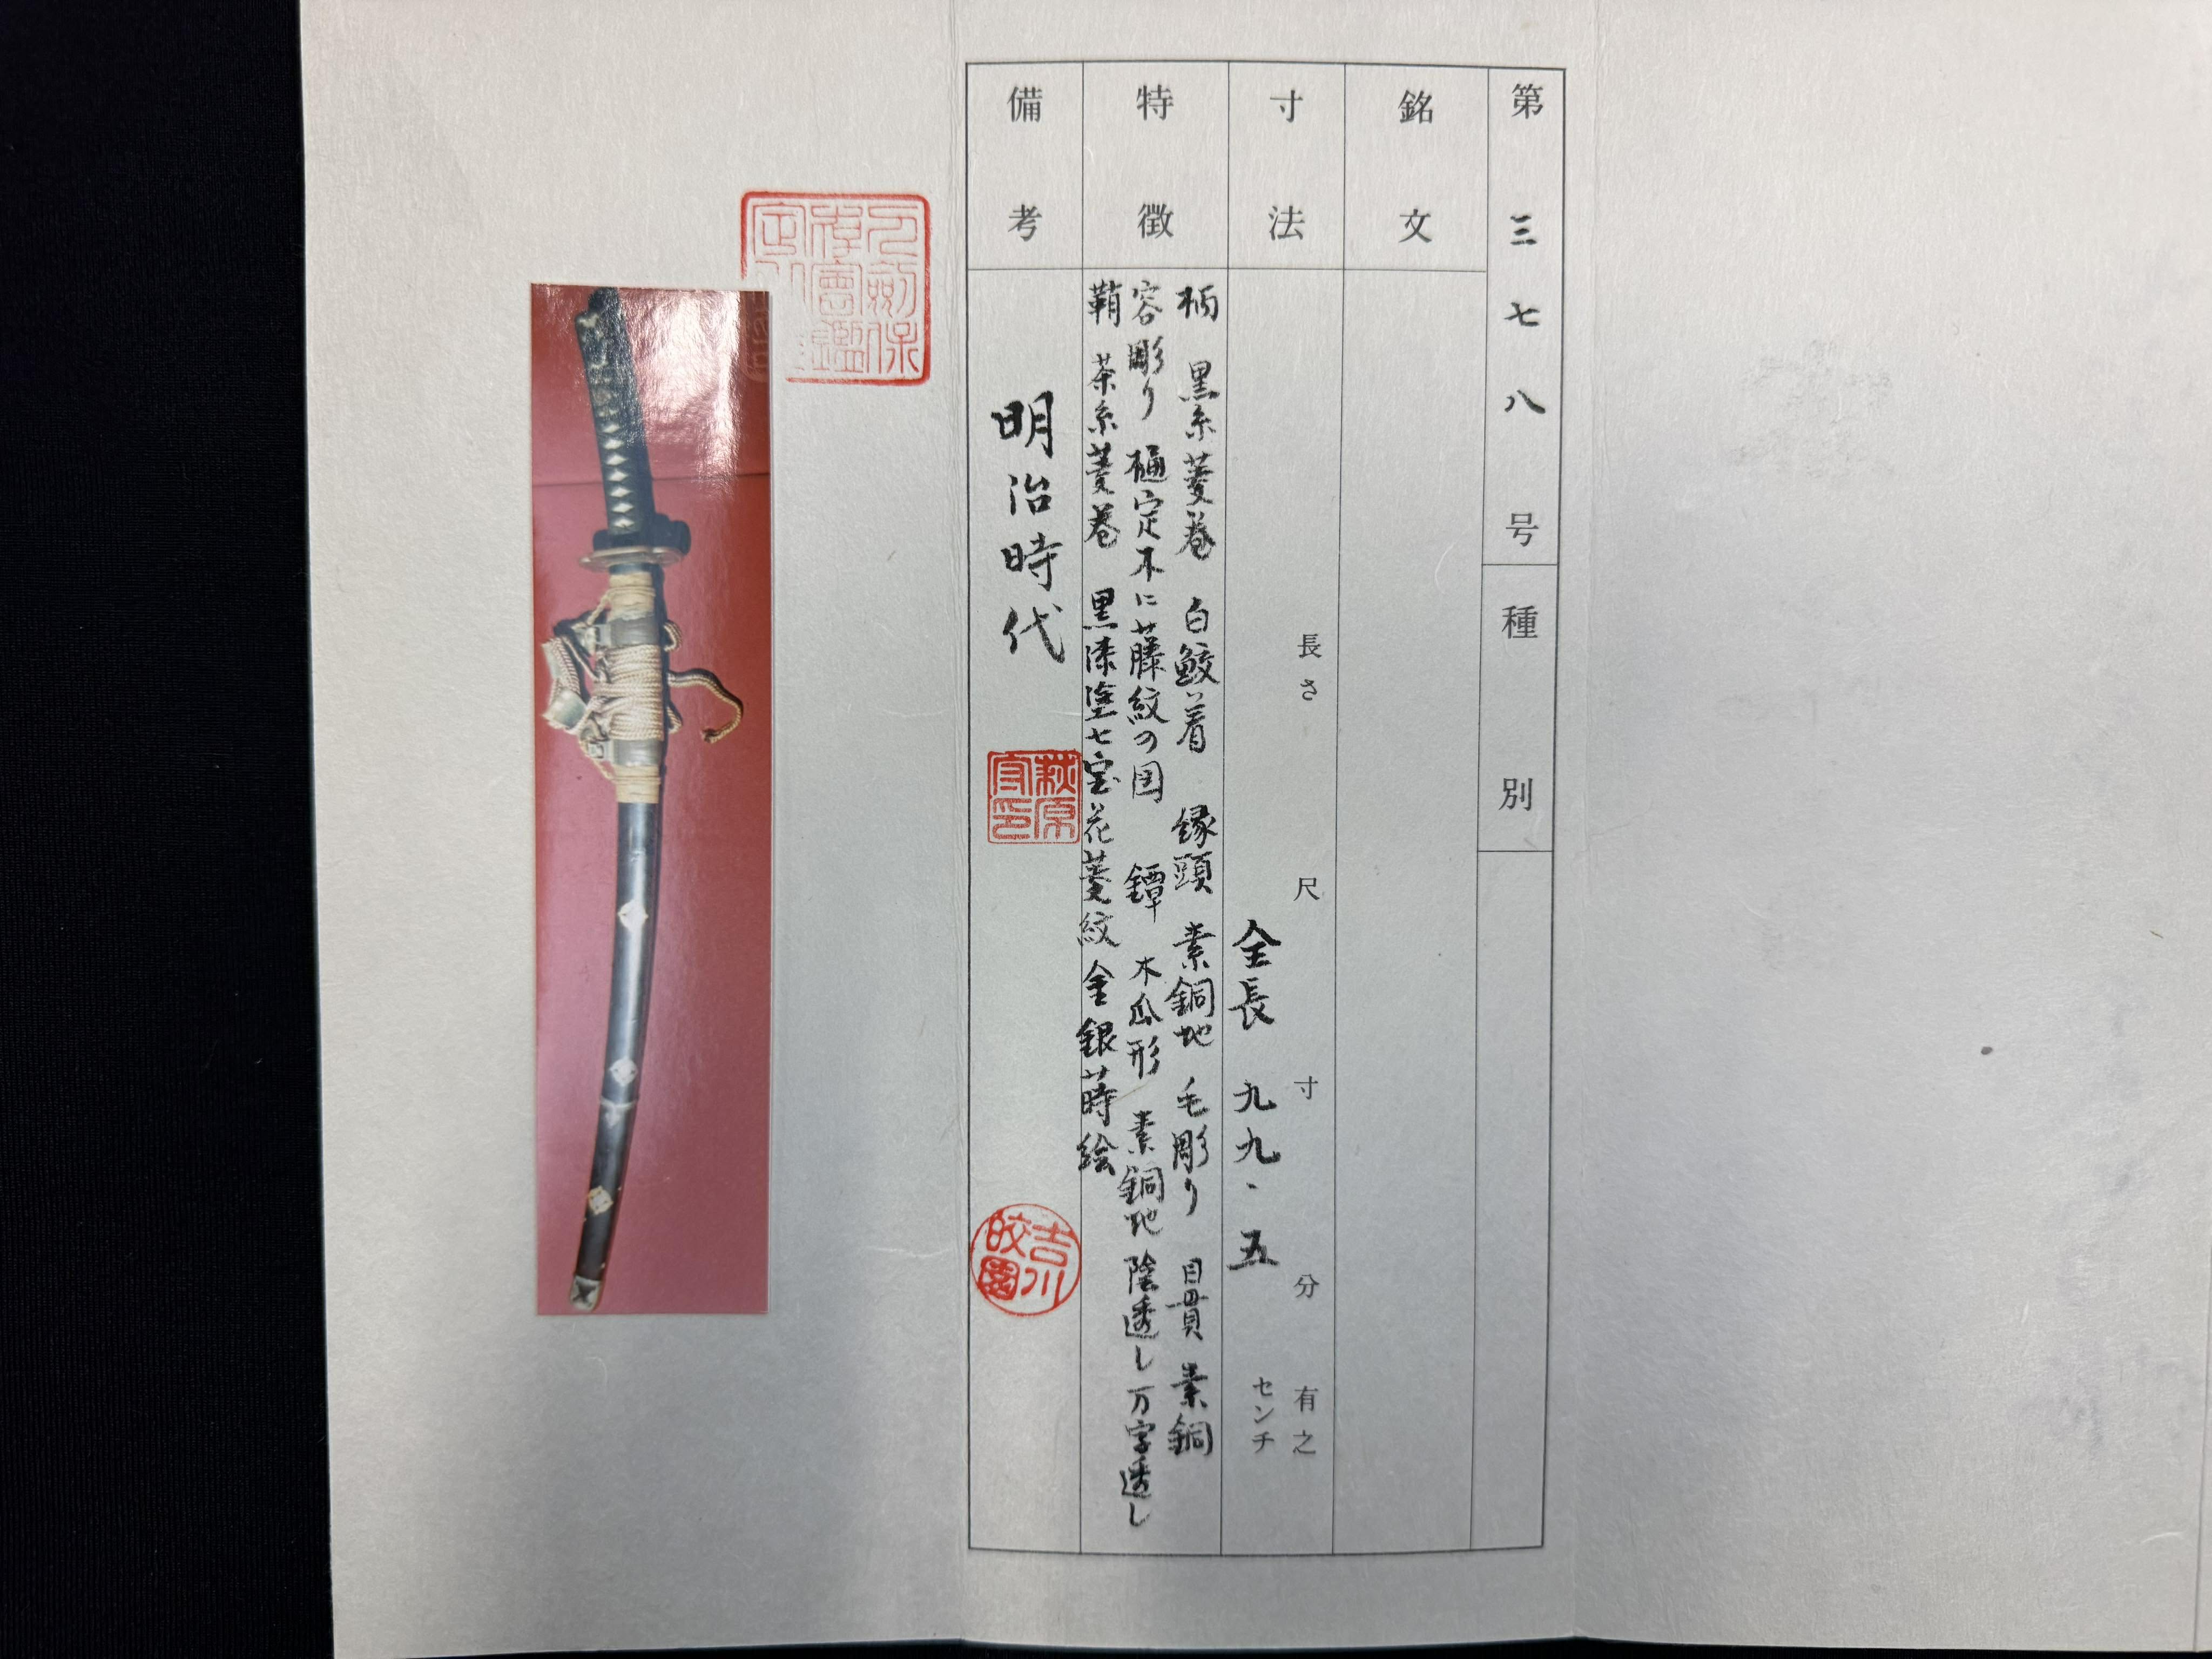 第三七八号
種別
銘文
寸法
長さ 尺 寸 分 有之
全長 九九、五 センチ
特徴
柄 黒糸菱巻 白鮫着 縁頭 素銅地 毛彫り 目貫 素銅
容彫り 樋定木に藤紋の図 鐔 木瓜形 素銅地 陰透し 万字透し
鞘 茶糸菱巻 黒漆塗七宝花菱紋 金銀蒔絵
備考
明治時代
萩原
吉川皎園